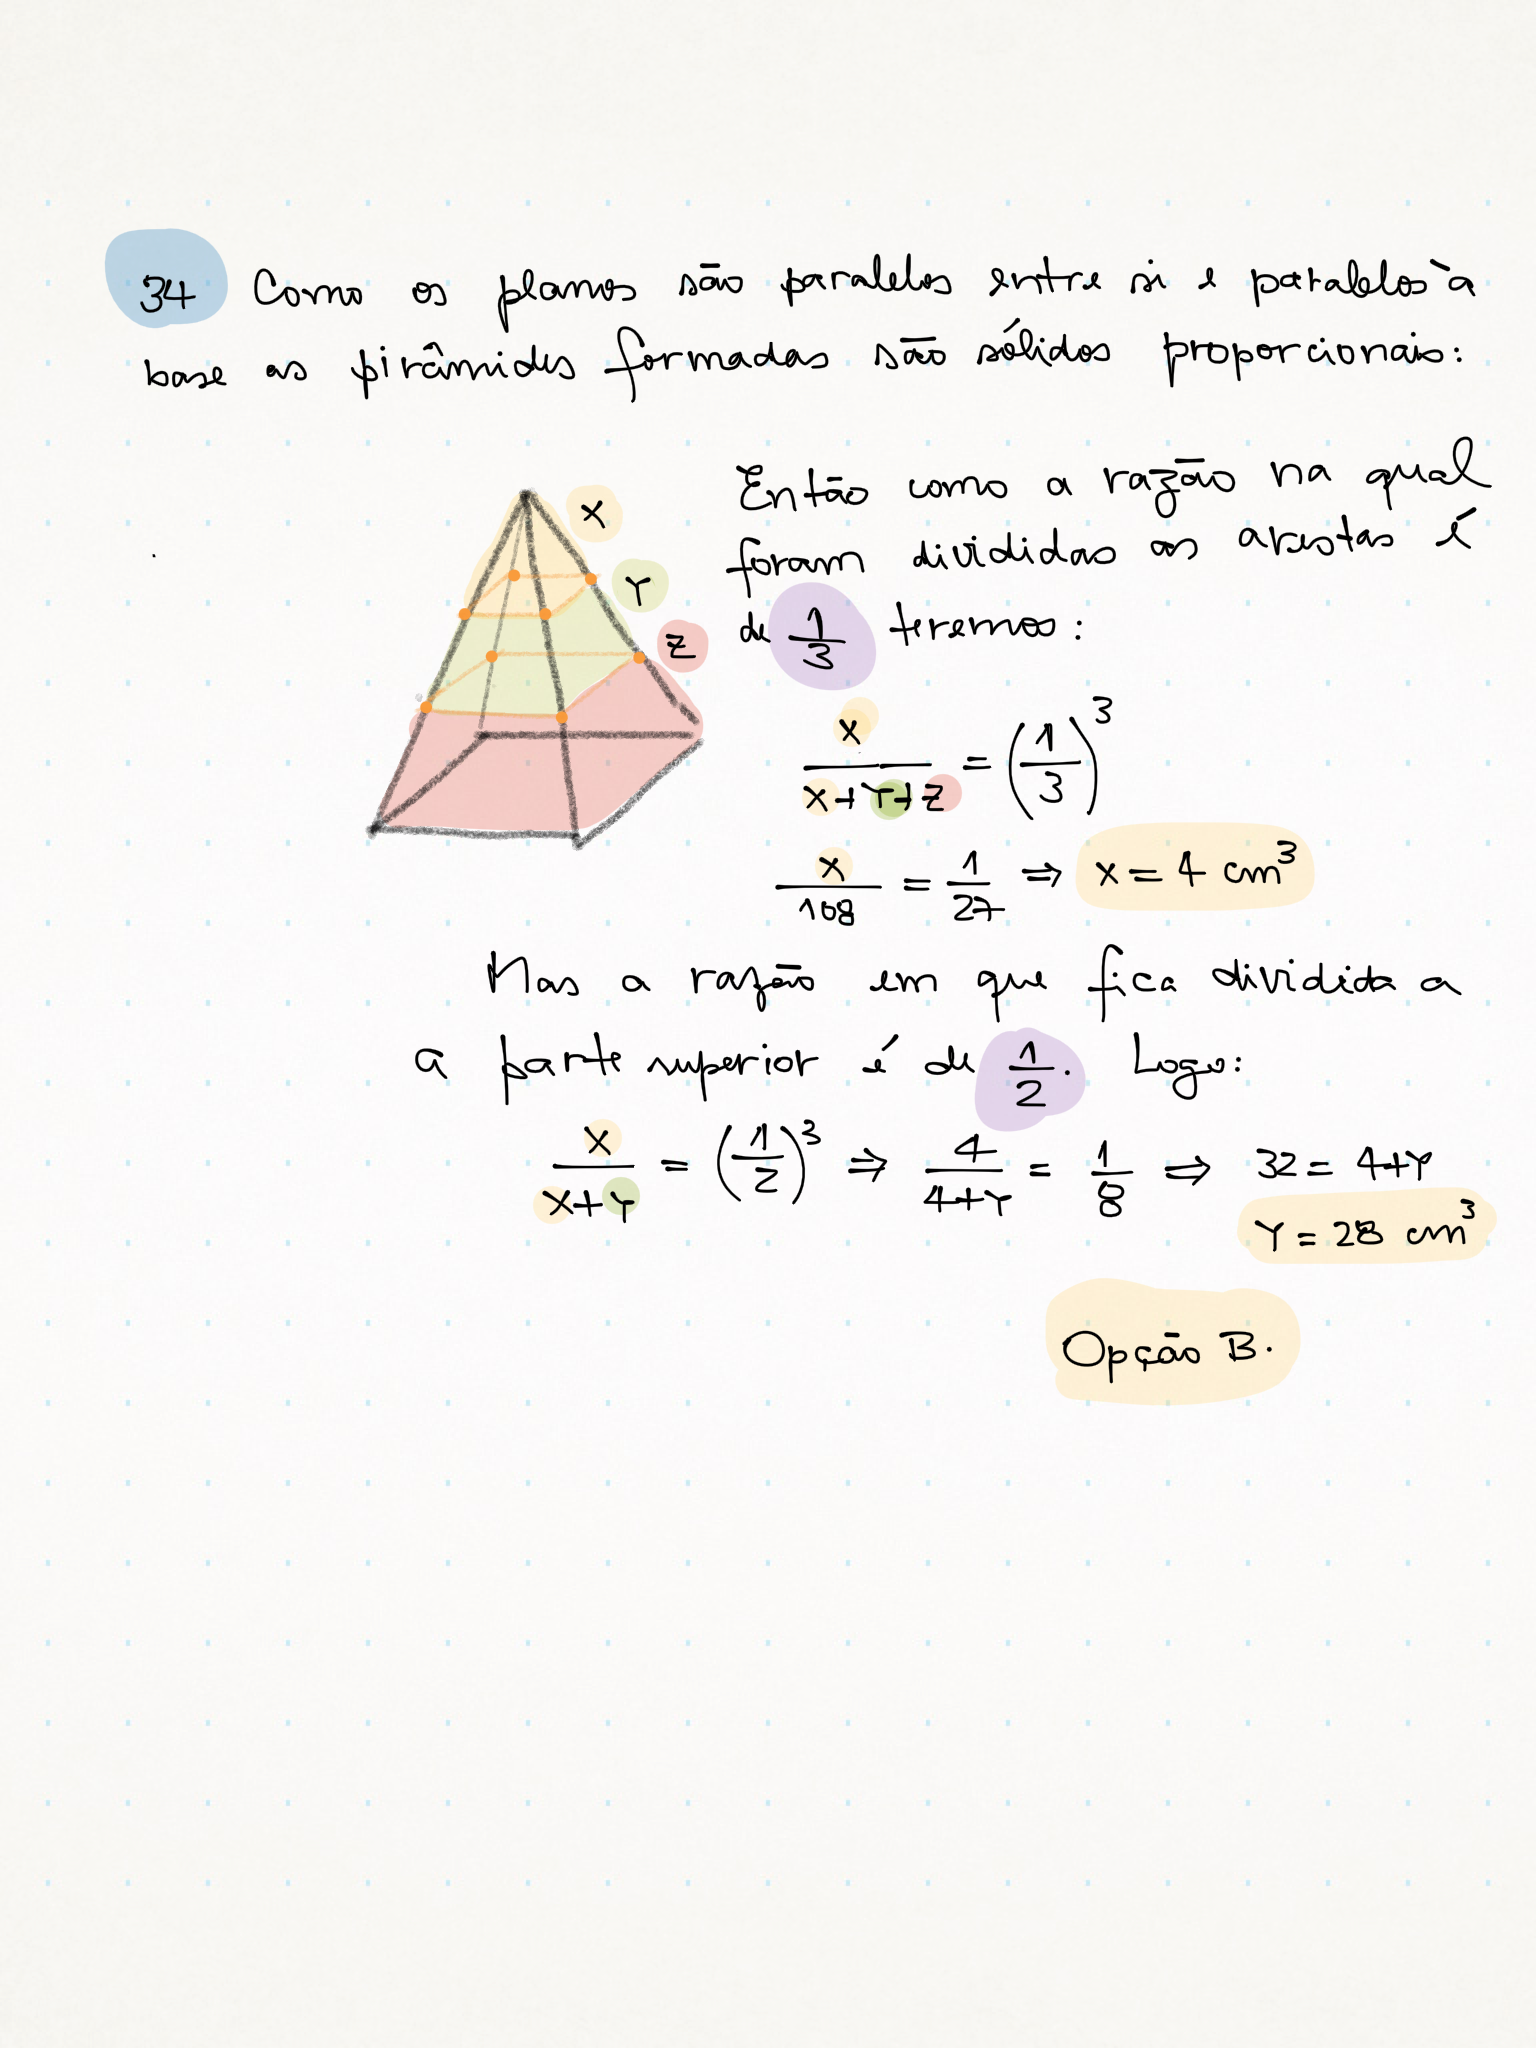 34 Como os planos são paralelos entre si e paralelos à
base as pirâmides formadas são sólidos proporcionais:
X
Y
Z
Então como a razão na qual
foram divididas as arestas é
de 1/3 teremos:
X/(X+Y+Z) = (1/3)^3
X/108 = 1/27 ⇒ X = 4 cm^3
Mas a razão em que fica dividida a
a parte superior é de 1/2. Logo:
X/(X+Y) = (1/2)^3 ⇒ 4/(4+Y) = 1/8 ⇒ 32 = 4+Y
Y = 28 cm^3
Opção B.